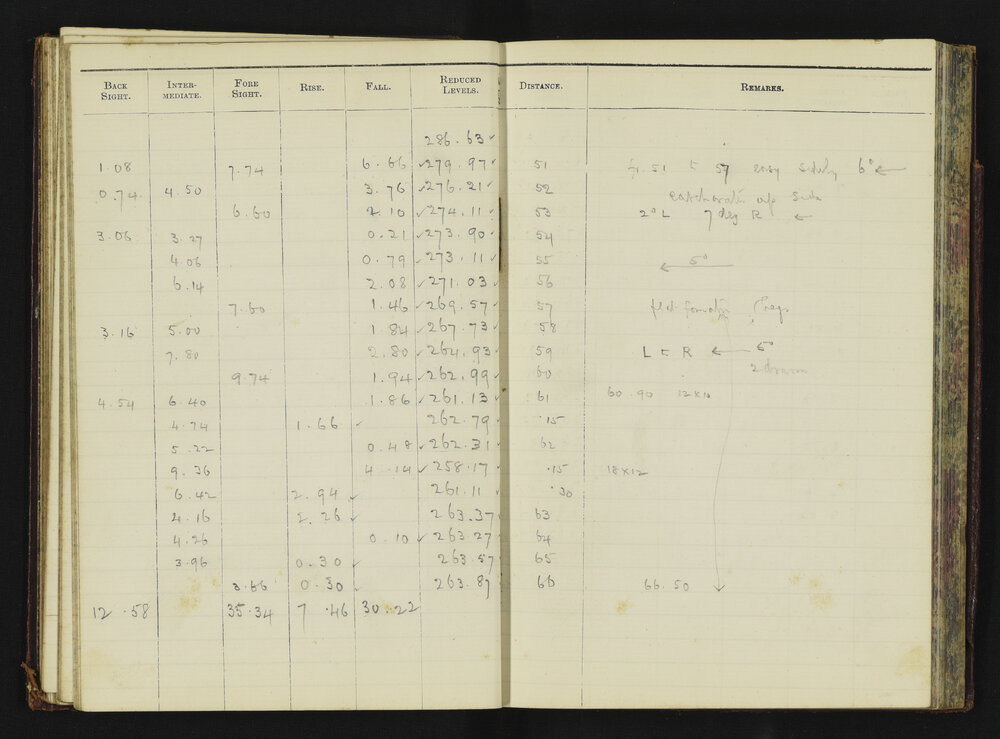 BACK SIGHT. INTER-MEDIATE. FORE SIGHT. RISE. FALL. REDUCED LEVELS. DISTANCE. REMARKS.
286.63 ✓
1.08 7.74 6.66 ✓ 279.97 ✓ 51 fr. 51 to 57 easy 6° ←
0.74 4.50 3.76 ✓ 276.21 ✓ 52
6.60 2.10 ✓ 274.11 ✓ 53 2° L 7 deg R ←
3.06 3.27 0.21 ✓ 273.90 ✓ 54
4.06 0.79 ✓ 273.11 ✓ 55 ← 5°
6.14 2.08 ✓ 271.03 ✓ 56
7.60 1.46 ✓ 269.57 ✓ 57 flat formation
3.16 5.00 1.84 ✓ 267.73 ✓ 58
7.80 2.80 ✓ 264.93 ✓ 59 L to R ← 5°
9.74 1.94 ✓ 262.99 ✓ 60
4.54 6.40 1.86 ✓ 261.13 ✓ 61 60.90 12×10
4.74 1.66 ✓ 262.79 ✓ .15
5.22 0.48 ✓ 262.31 ✓ 62
9.36 4.14 ✓ 258.17 ✓ .15 18×12
6.42 2.94 ✓ 261.11 ✓ .30
4.16 2.26 ✓ 263.37 63
4.26 0.10 ✓ 263.27 64
3.96 0.30 ✓ 263.57 65
3.66 0.30 ✓ 263.87 66 66.50
12.58 35.34 7.46 30.22